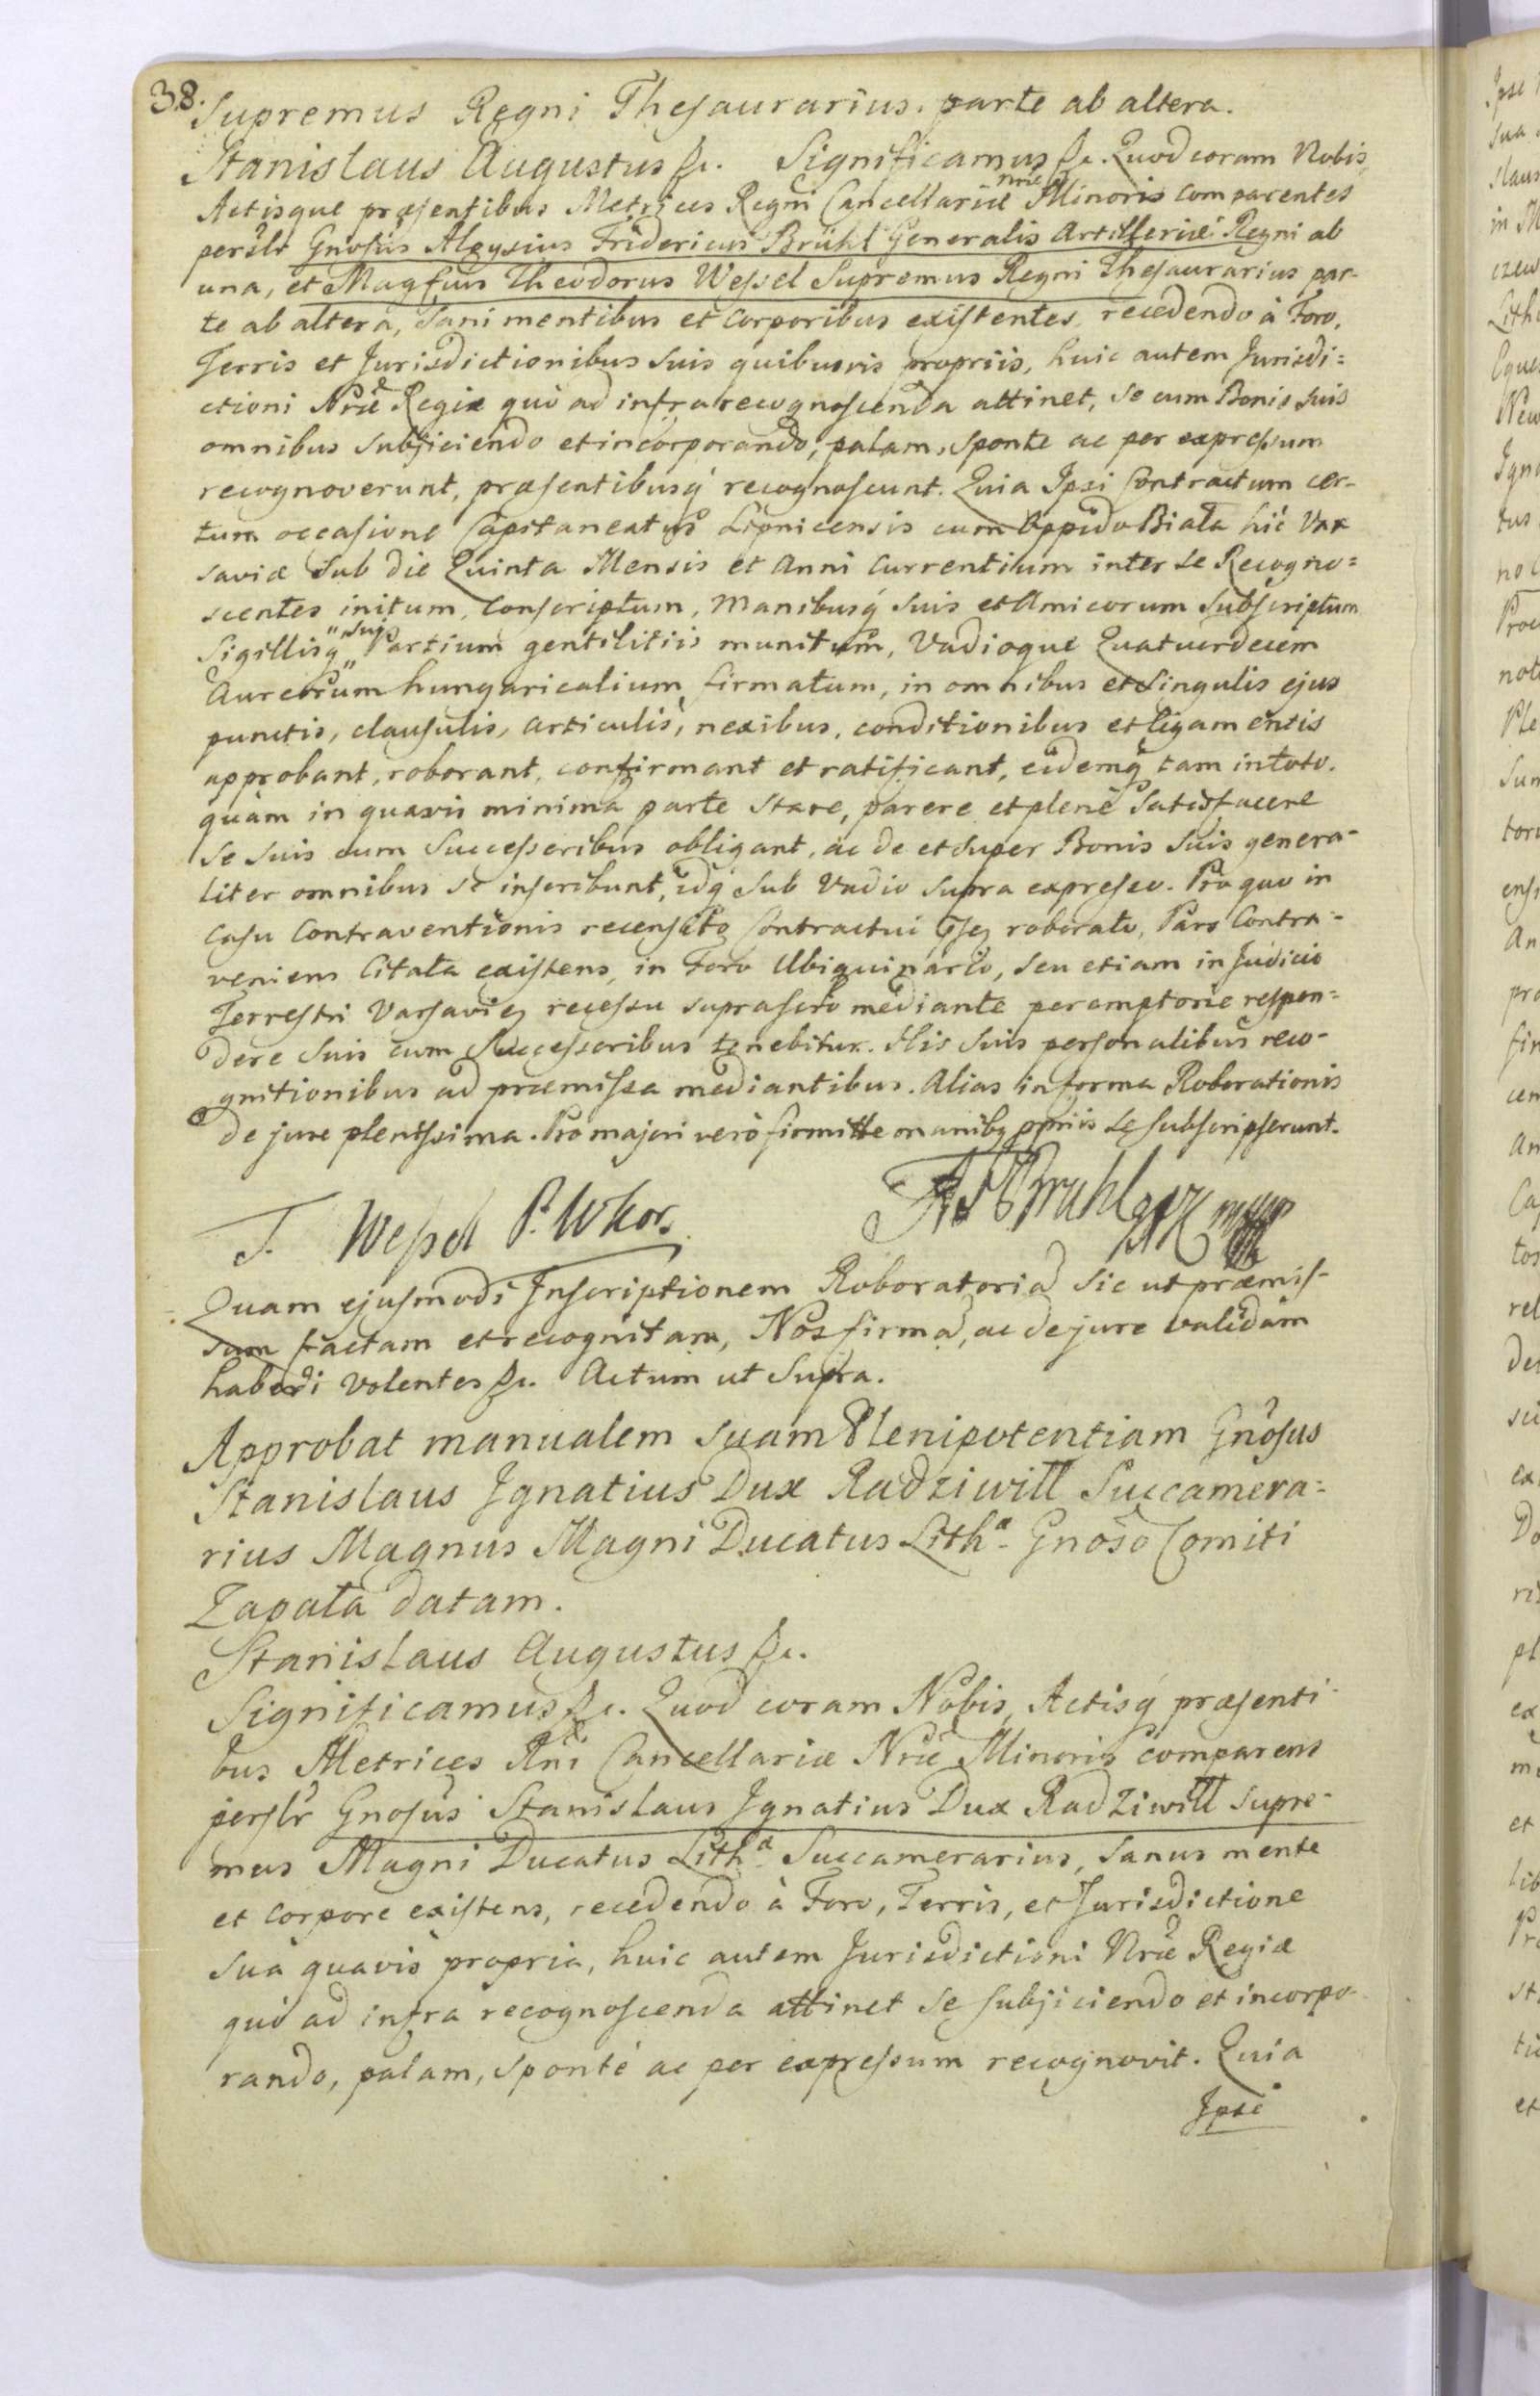 38.
Supremus Regni Thesaurarius. parte ab altera.
Stanislaus Augustus &c. Significamus &c. Quod coram Nobis,
Actisque præsentibus Metrices Regni Cancellariæ Nræ Minoris comparentes
persłr Gnosus Aloysius Fridericus Brühl Generalis Artilleriæ Regni ab
una, et Magfcus Theodorus Wessel Supremus Regni Thesaurarius par-
te ab altera, Sani mentibus et Corporibus existentes, recedendo à Foro,
Terris et Jurisdictionibus suis quibusvis propriis, huic autem Jurisdi=
ctioni Nræ Regiæ quò ad infra recognoscenda attinet, se cum Bonis suis
omnibus subjiciendo et incorporando, palam, sponte ac per expressum
recognoverunt, præsentibusq́ recognoscunt. Quia Ipsi Contractum cer-
tum occasione Capitaneatus Lipnicensis cum Oppido Biała hic Var
saviæ sub die Quinta Mensis et Anni currentium inter se Recogno=
scentes initum, Conscriptum, Manibusq́ suis et Amicorum subscriptum
Sigillisq́ " suis " Partium gentilitiis munitum, Vadioque Quatuordecem
Aureorum hungaricalium firmatum, in omnibus et singulis ejus
punctis, clausulis, articulis, nexibus, conditionibus et ligamentis
approbant, roborant, confirmant et ratificant, eidemq́ tam in toto.
quàm in quavis minima parte stare, parere et plenè satisfacere
se suis cum Successoribus obligant, ac de et super Bonis suis genera-
liter omnibus se inscribunt, idq́ sub Vadio supra expresso. Pro quo in
Casu Contraventionis recensito Contractui roborato, Pars Contra-
veniens Citata existens, in Foro Ubiquinario, seu etiam in Judicio
Terrestri Varsavien recessu suprascrto mediante peremptorie respon=
dere suis cum Successoribus tenebitur. His suis personalibus reco-
gnitionibus ad præmissa mediantibus. Alias in forma Roborationis
de jure plenissima. Pro majori verò firmitte manibq ppriis se subscripserunt.
T. Wessel P. W. Kor.
Brühl
Quam ejusmodi Inscriptionem Roboratoriã sic ut præmis-
sum factam et recognitam, Nos firmã, ac de jure validam
haberi volentes &c. Actum ut Supra.
Approbat manualem suam Plenipotentiam Gnosus
Stanislaus Ignatius Dux Radziwiłł Succamera=
rius Magnus Magni Ducatus Lithæ Gnoso Comiti
Zapata datam.
Stanislaus Augustus &c.
Significamus &c. Quod coram Nobis, Actisq́ præsenti-
bus Metrices Rni Cancellariæ Nræ Minoris comparens
persłr Gnosus Stanislaus Ignatius Dux Radziwiłł Supre-
mus Magni Ducatus Lithæ Succamerarius, Sanus mente
et corpore existens, recedendo à Foro, Terris, et Jurisdictione
suà quavis propria, huic autem Jurisdictioni Nræ Regiæ
quò ad infra recognoscenda attinet se subjiciendo et incorpo-
rando, palam, sponté ac per expressum recognovit. Quia
Ipse